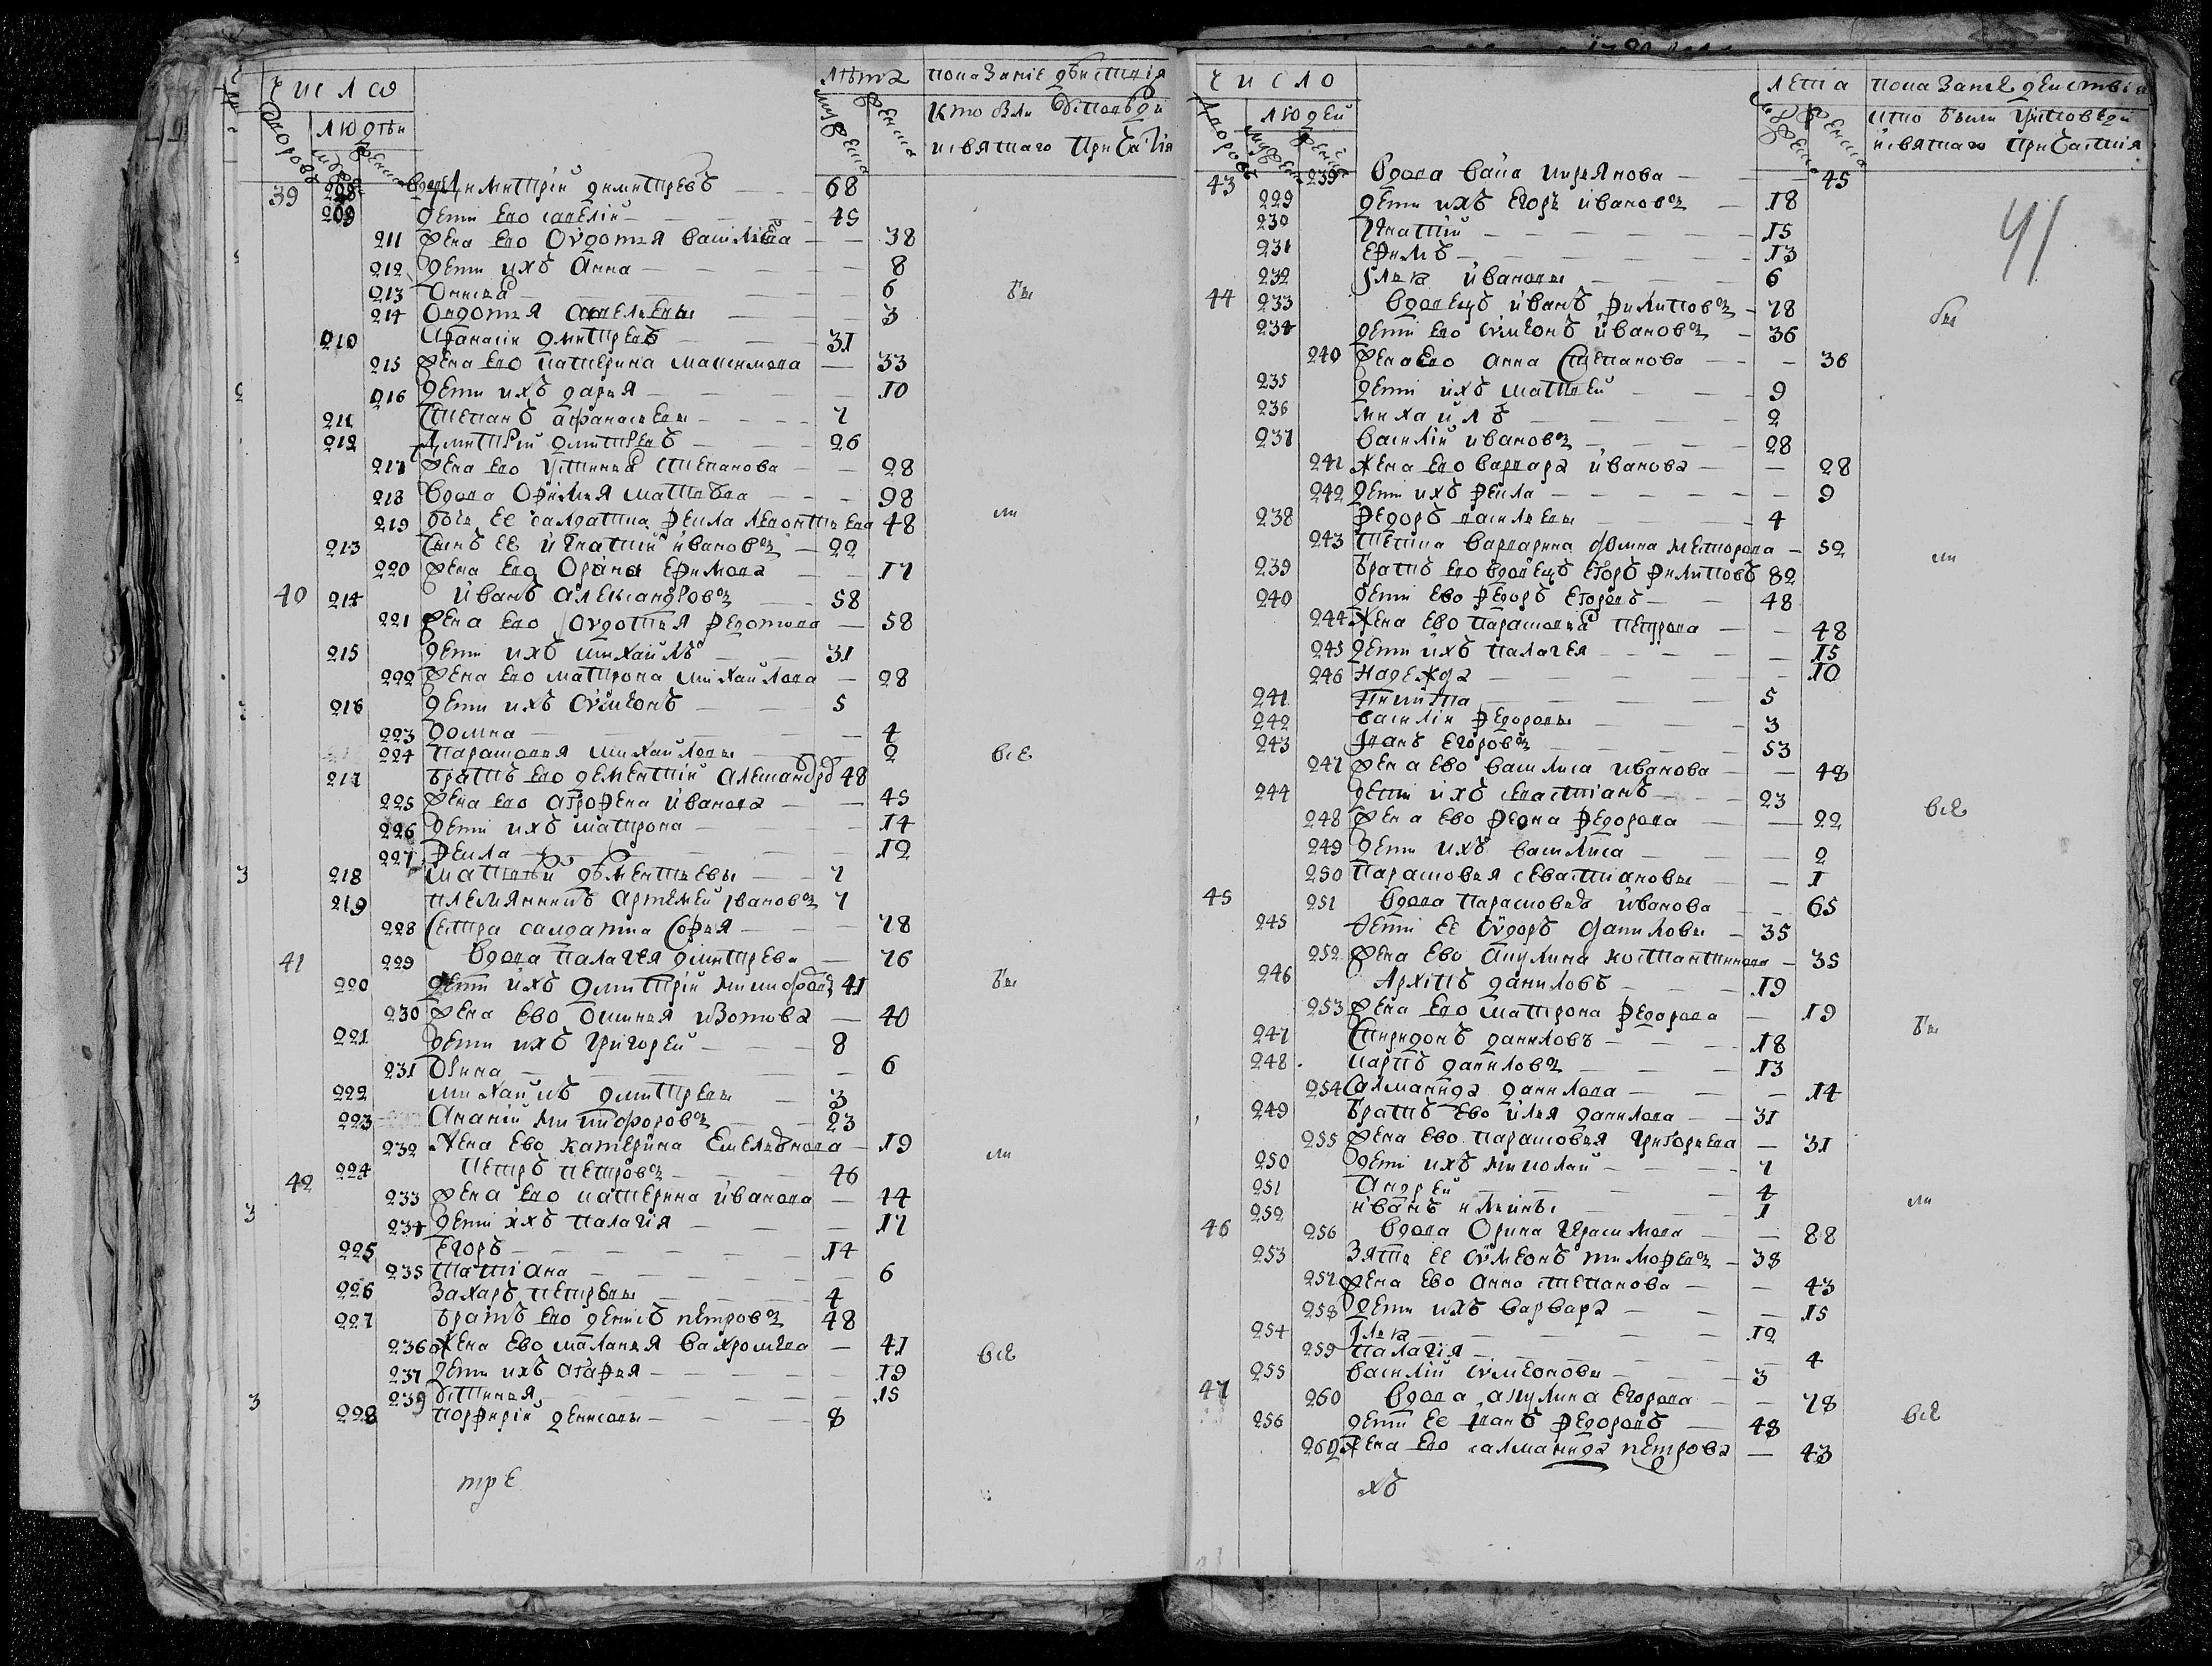 числа лѣта показание действия
дворовъ людѣи мужеска женска мужеска женска кто были уисповѣди
исвятаго причастия
39 208 вдов Димитрии димитревъ 68
209 дети ево савелий 45
211 жена ево овдотия василиева 38
212 дети ихъ анна 8
213 6
214 овдотия савельевы 3
210 афанасии дмитревъ 31
215 жена ево катерина максимова 33
216 дети ихъ дария 10
211 степанъ афанасьевы 7
212 Дмитрий дмитревъ 26
217 жена ево устиния степанова 28
218 вдова офимия матвѣва 98
219 ее салдатка фекла леонтиева 48
213 сынъ ее игнатий ивановъ 22
220 жена ево орина ефимова 17
40 214 иванъ александровъ 58
221 жена ево овдотия федотова 58
215 дети ихъ михайлъ 31
222 жена ево матрона михайлова 28
216 дети ихъ сумеонъ 5
223 домна 4
224 парасковия михайловы 2
217 братъ ево дементий александръ 48
225 жена ево агрофена иванова 45
226 дети ихъ матрона 14
227 фекла 12
218 матвѣй дементиевы 7
219 племянникъ артемей ивановъ 7
228 сестра салдатка софия 78
41 229 вдова палагея дмитрева 76
220 дети ихъ дмитрий никифоровъ 41
230 жена ево изотова 40
221 дети ихъ григорей 8
231 орина 6
222 михайлъ дмитревы 3
223 ананий никифоровъ 23
232 жена ево катерина емельянова 19
42 224 петръ петровъ 46
233 жена ево катерина иванова 44
234 дети ихъ палагия 17
225 егоръ 14
235 татиана 6
226 захаръ петровы 4
227 братъ ево денисъ петровъ 48
236 жена ево малания вахромеева 41
237 дети ихъ агафия 19
239 устиния 15
228 порфирий денисовы 8
бы
ли
все
бы
ли
все
тре
число лета показание действия
дворовъ людей мужеска женска мужеска женска кто были уисповеди
исвятаго причастия
41
43 239 вдова кирянова 45
229 дети ихъ егоръ ивановъ 18
230 игнатий 15
231 ефимъ 13
232 илья ивановы 6
44 233 вдовецъ иванъ филиповъ 78
234 дети ево сумеонъ ивановъ 36
240 жена ево анна степанова 36
235 дети ихъ матвей 9
236 михайлъ 2
237 василий ивановъ 28
241 жена ево варвара иванова 28
242 дети ихъ фекла 9
238 федоръ васильевы 4
243 тетка варварина домна 52
239 братъ ево вдовецъ егоръ филиповъ 82
240 дети ево федоръ егоровъ 48
244 жена ево парасковия петрова 48
245 дети ихъ палагея 15
246 надежда 10
241 никита 5
242 василий федоровы 3
243 иванъ егоровъ 53
247 жена ево василиса иванова 48
244 дети ихъ севастианъ 23
248 жена ево федора федорова 22
249 дети ихъ василиса 2
250 парасковия севастиановы 1
45 251 вдова парасковия иванова 65
245 дети ее сидоръ даниловы 35
252 жена ево акулина костантинова 35
246 архипъ даниловъ 19
253 жена ево матрона федорова 19
247 спиридонъ даниловъ 18
248 карпъ даниловъ 13
254 саламанида данилова 14
249 братъ ево илия данилова 31
255 жена ево парасковия григориева 31
250 дети ихъ николай 7
251 андрей 4
252 иванъ ильины 1
46 256 вдова орина герасимова 88
253 зять ее сумеонъ тимофеевъ 38
257 жена ево анна степанова 43
258 дети ихъ варвара 15
254 илья 12
259 палагия 4
255 василий сумеоновы 3
47 260 вдова акулина егорова 78
256 дети ее иванъ федоровъ 48
262 жена ево саламанида петрова 43
бы
ли
все
бы
ли
все
хъ